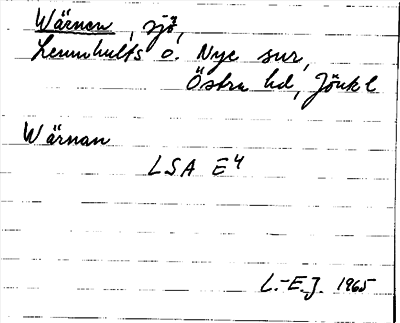 Wärnen, sjö,
Lennhults o. Nye sur,
Östra hd, Jönk l
Wärnan
LSA E4
L.-E.J. 1965